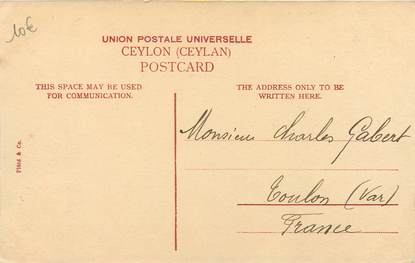 10€
UNION POSTALE UNIVERSELLE
CEYLON (CEYLAN)
POSTCARD
THIS SPACE MAY BE USED
FOR COMMUNICATION.
THE ADDRESS ONLY TO BE
WRITTEN HERE.
Plâté & Co.
Monsieur Charles Gabert
Toulon (Var)
France